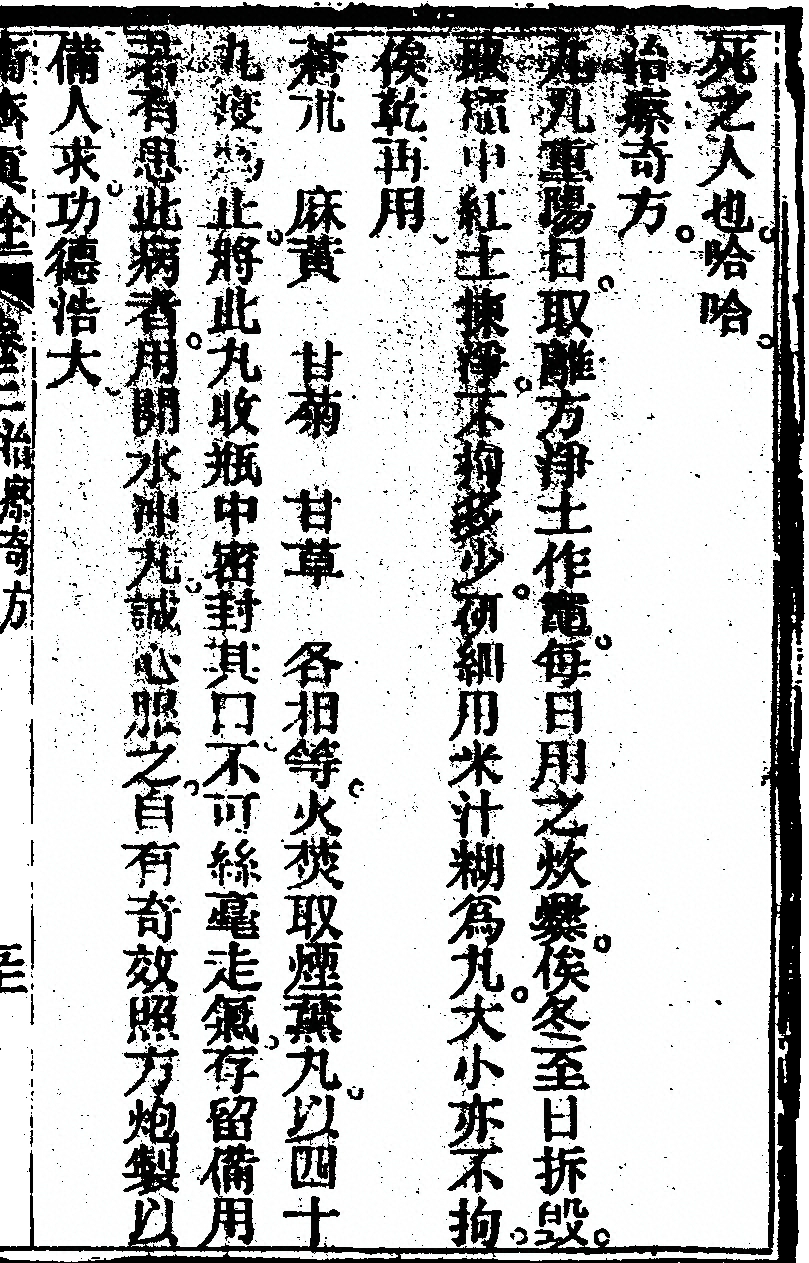 死之人也哈哈
治療奇方
九九重陽日取離方淨土作竈每日用之炊爨俟冬至日拆毀
取竈中紅土揀淨不拘多少研細用米汁糊爲丸大小亦不拘
俟乾再用
蒼朮 麻黃 甘菊 甘草 各相等火焚取煙薰丸以四十
九度爲止將此丸收瓶中密封其口不可絲毫走氣存留備用
若有患此病者用開水沖丸誠心服之自有奇效照方炮製以
備人求功德浩大
卷二治療奇方